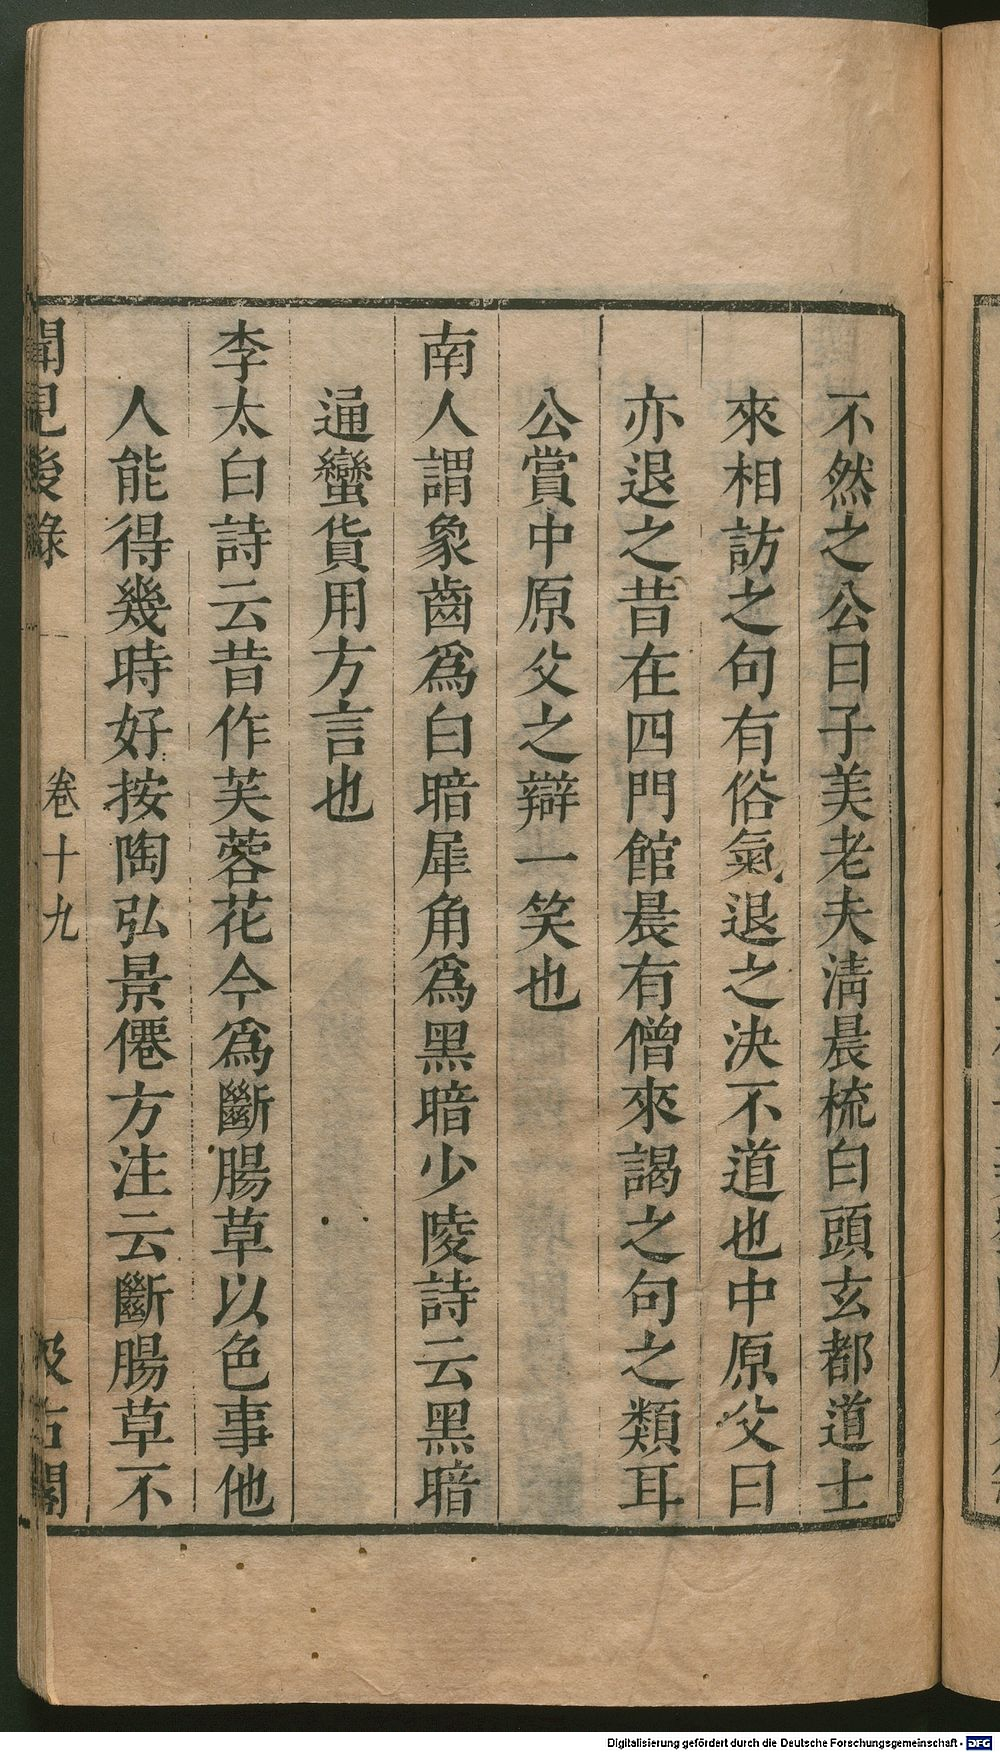 不然之公曰子美老夫清晨梳白頭玄都道士
來相訪之句有俗氣退之決不道也中原父曰
亦退之昔在四門館晨有僧來謁之句之類耳
公賞中原父之辯一笑也
南人謂象齒爲白暗犀角爲黑暗少陵詩云黑暗
通蠻貨用方言也
李太白詩云昔作芙蓉花今爲斷腸草以色事他
人能得幾時好按陶弘景僊方注云斷腸草不
聞見後錄 卷十九 汲古閣
Digitalisierung gefördert durch die Deutsche Forschungsgemeinschaft - DFG